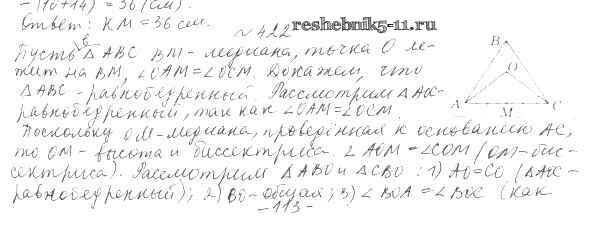 -(10+14) = 36 (см).
Ответ: КМ = 36 см.
reshebnik5-11.ru
№ 422
Пусть в △ ABC BM - медиана, точка О ле-
жит на BM, ∠OAM = ∠OCM. Докажем, что
△ABC - равнобедренный. Рассмотрим △AOC
равнобедренный, так как ∠OAM = ∠OCM.
Поскольку OM - медиана, проведённая к основанию AC,
то OM - высота и биссектриса ∠ AOM = ∠COM (OM - бис-
сектриса). Рассмотрим △ABO и △CBO: 1) AO = CO (△AOC -
равнобедренный); 2) BO - общая; 3) ∠ BOA = ∠ BOC (как
B
O
A
M
C
-113-